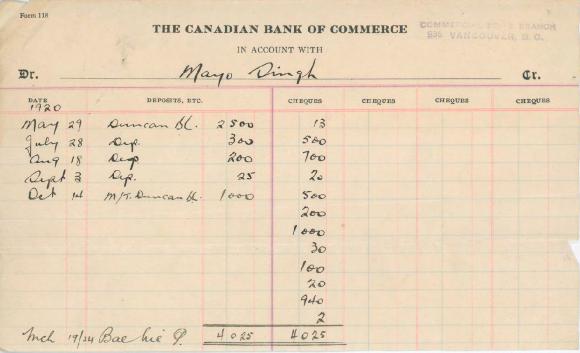 Form 118
THE CANADIAN BANK OF COMMERCE
COMMERCIAL BRANCH
VANCOUVER, B.C.
IN ACCOUNT WITH
Dr. Mayo Singh Cr.
DATE DEPOSITS, ETC. CHEQUES CHEQUES CHEQUES CHEQUES
1920
May 29 Duncan Bk. 2500 13
July 28 Dep. 300 500
Aug 18 Dep 200 700
Sept 3 Dep. 25 20
Oct 14 M/T. Duncan Bk. 1000 500
200
1000
30
100
20
940
2
Mch 19/24 4025 4025